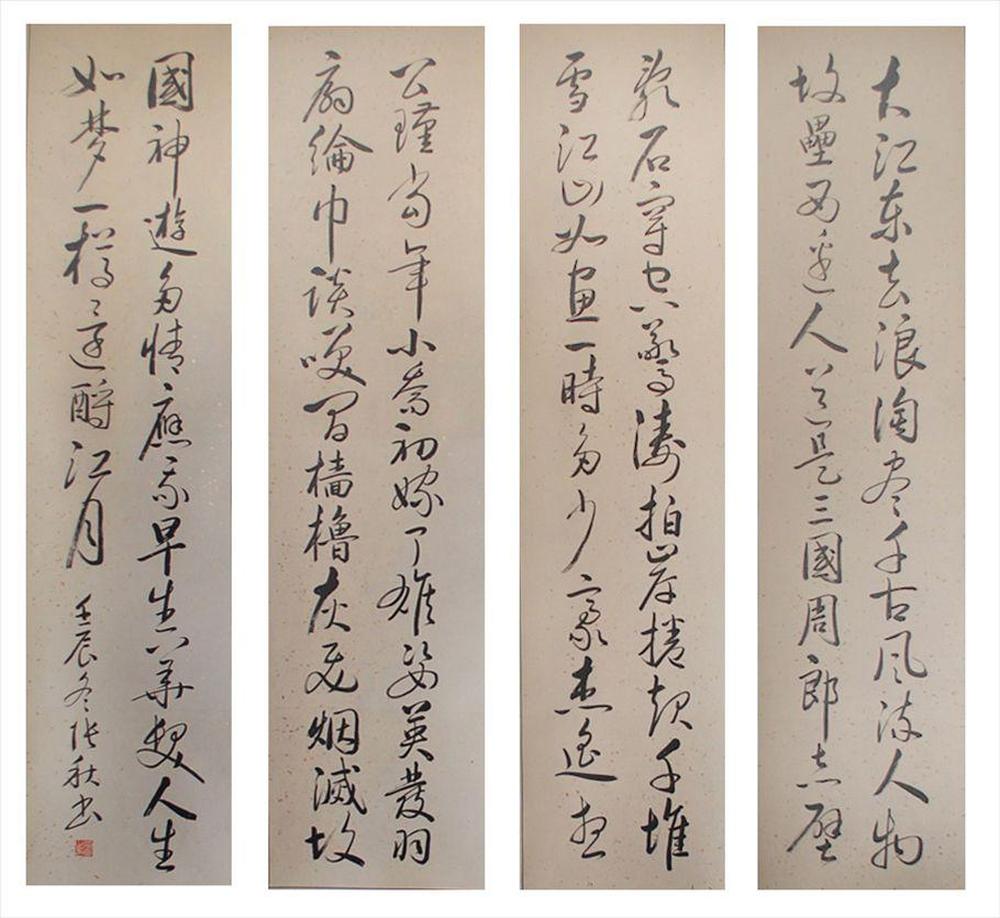 大江东去浪淘尽千古风流人物
故壘西邊人道是三國周郎赤壁
亂石穿空驚濤拍岸捲起千堆
雪江山如畫一時多少豪杰遥想
公瑾當年小喬初嫁了雄姿英發羽
扇綸巾談笑間檣櫓灰飛烟滅故
國神遊多情應我早生華髮人生
如梦一樽還酹江月
壬辰冬張秋書